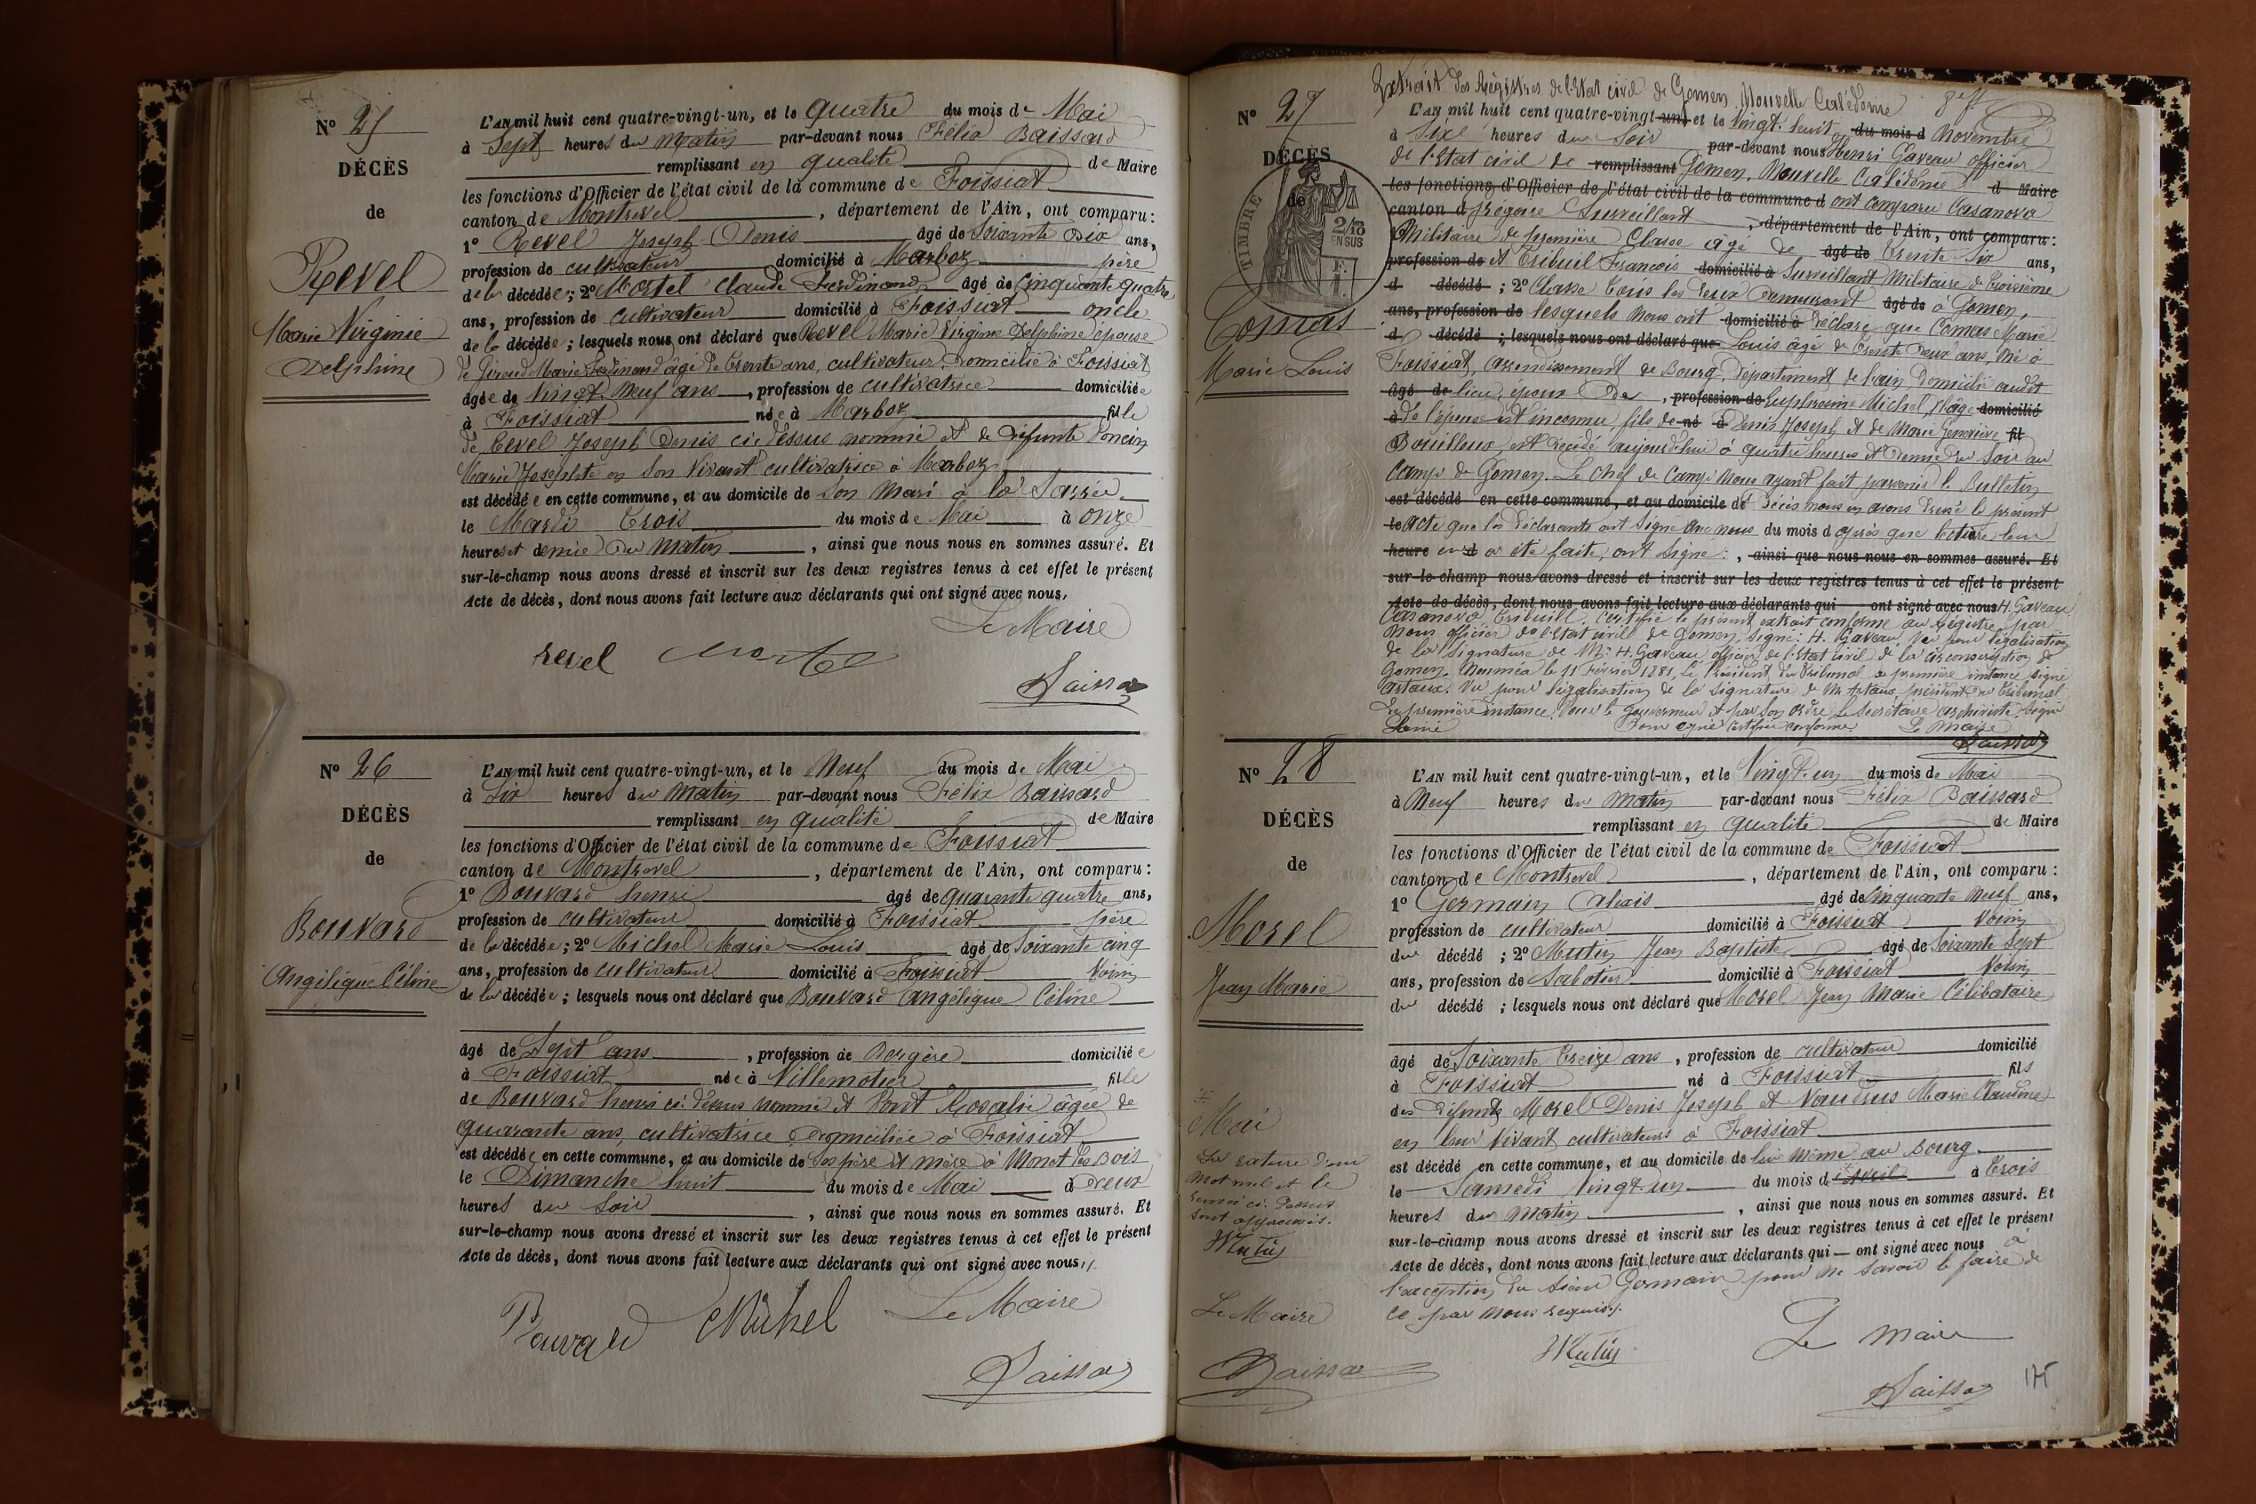 Nº 25
DÉCÈS
de
Revel
Marie Virginie
Delphine
L'AN mil huit cent quatre-vingt-un, et le quatre du mois de Mai
à Sept heures du Matin par-devant nous Félix Baissard
remplissant en qualité de Maire
les fonctions d'Officier de l'état civil de la commune de Foissiat
canton de Montrevel, département de l'Ain, ont comparu :
1º Revel Joseph Denis âgé de Soixante Dix ans,
profession de cultivateur domicilié à Marboz père
de la décédée ; 2º Mortel Claude Ferdinand âgé de Cinquante quatre
ans, profession de cultivateur domicilié à Foissiat oncle
de la décédée ; lesquels nous ont déclaré que Revel Marie Virginie Delphine épouse
de Giroud Marie Ferdinand âgé de Trente ans, cultivateur, Domicilié à Foissiat
âgée de Vingt-Neuf ans, profession de cultivatrice domiciliée
à Foissiat née à Marboz fille
de Revel Joseph Denis ci-dessus nommé et de Défunte Poncin
Marie Josephte en Son Vivant cultivatrice à Marboz
est décédée en cette commune, et au domicile de Son Mari à la
le Mardi Trois du mois de Mai à onze
heures et demie du Matin, ainsi que nous nous en sommes assuré. Et
sur-le-champ nous avons dressé et inscrit sur les deux registres tenus à cet effet le présent
Acte de décès, dont nous avons fait lecture aux déclarants qui ont signé avec nous,
Le Maire
revel
Baissard
Nº 26
DÉCÈS
de
Bouvard
Angélique Céline
L'AN mil huit cent quatre-vingt-un, et le Neuf du mois de Mai
à Six heures du Matin par-devant nous Félix Baissard
remplissant en qualité de Maire
les fonctions d'Officier de l'état civil de la commune de Foissiat
canton de Montrevel, département de l'Ain, ont comparu :
1º Bouvard henri âgé de quarante quatre ans,
profession de cultivateur domicilié à Foissiat père
de la décédée ; 2º Michel Marie Louis âgé de Soixante cinq
ans, profession de cultivateur domicilié à Foissiat Voisin
de la décédée ; lesquels nous ont déclaré que Bouvard Angélique Céline
âgé de Sept ans, profession de Bergère domiciliée
à Foissiat née à Villemotier fille
de Bouvard henri ci-dessus nommé et Pont Rosalie âgée de
quarante ans, cultivatrice Domiciliée à Foissiat
est décédé en cette commune, et au domicile de Ses père et mère à Monet les Bois
le Dimanche huit du mois de Mai à Deux
heures du Soir, ainsi que nous nous en sommes assuré. Et
sur-le-champ nous avons dressé et inscrit sur les deux registres tenus à cet effet le présent
Acte de décès, dont nous avons fait lecture aux déclarants qui ont signé avec nous,
Le Maire
Bouvard Michel
Baissard
Nº 27
DÉCÈS
de
TIMBRE
2/10
EN SUS
Comas
Marie Louis
Extrait Des Régistres de l'Etat civil de Gomen, Nouvelle Calédonie
L'AN mil huit cent quatre-vingt-un, et le Vingt-huit du mois d Novembre
à Sixe heures du Soir par-devant nous Henri Gaveau officier
de l'Etat civil de remplissant Gomen, Nouvelle Calédonie d Maire
les fonctions d'Officier de l'état civil de la commune d ont comparu Casanova
canton d Grégoire Surveillant, département de l'Ain, ont comparu :
Militaire de première Classe âgé de âgé de Trente Six ans,
profession de et Tribuil François domicilié à Surveillant Militaire de Troisième
d décédé ; 2º Classe tous les Deux Demeurant âgé de à Gomen,
ans, profession de lesquels nous ont domicilié à Déclaré que Comas Marie
d décédé ; lesquels nous ont déclaré que Louis âgé de Trente Deux ans, Né à
Foissiat, arrondissement de Bourg, Département de l'ain Domicilié audit
âgé de lieu, époux De, profession de Euphrosine Michel, l'âge domicilié
à de l'épouse est inconnu, fils de né à Denis Joseph et de Marie Geneviève fil
Bouilloux, est Décédé aujourd'hui à quatre heures et Demie du Soir au
Camp de Gomen. Le Chef de Camp Nous ayant fait parvenir le Bulletin
est décédé en cette commune, et au domicile de Décès nous en avons Dressé le présent
le acte que les Déclarants ont signé avec nous du mois d après que lecture leur
heure en d a été faite, ont signé :, ainsi que nous nous en sommes assuré. Et
sur-le-champ nous avons dressé et inscrit sur les deux registres tenus à cet effet le présent
Acte de décès, dont nous avons fait lecture aux déclarants qui ont signé avec nous H. Gaveau
Casanova Tribuil. Certifié le présent extrait conforme au Régistre, par
Nous officier de l'Etat civil de Gomen, Signé : H. Gaveau. Vu pour légalisation
de la Signature de Mr H. Gaveau officier de l'Etat civil de la circonscription de
Gomen. Nouméa le 11 Février 1881, Le Président du Tribunal de première instance signé
Artaux. Vu pour légalisation de la Signature de Mr Artaux, président du Tribunal
De première instance. Pour le Gouverneur et par Son Ordre, Le Secrétaire archiviste, Signé
Pour copie Certifiée conforme Le Maire
Baissard
Nº 28
DÉCÈS
de
Morel
Jean Marie
Mai
La rature d'un
mot nul et le
renvoi ci-Dessus
sont approuvés.
Mutin
Le Maire
Baissard
L'AN mil huit cent quatre-vingt-un, et le Vingt-un du mois de Mai
à Neuf heures du Matin par-devant nous Félix Baissard
remplissant en qualité de Maire
les fonctions d'Officier de l'état civil de la commune de Foissiat
canton de Montrevel, département de l'Ain, ont comparu :
1º Germain Alexis âgé de Cinquante Neuf ans,
profession de cultivateur domicilié à Foissiat Voisin
du décédé ; 2º Mutin Jean Baptiste âgé de Soixante Sept
ans, profession de Sabotier domicilié à Foissiat Voisin
du décédé ; lesquels nous ont déclaré que Morel Jean Marie Célibataire
âgé de Soixante Treize ans, profession de cultivateur domicilié
à Foissiat né à Foissiat fils
des Défunts Morel Denis Joseph et Vaudrus Marie Claudine
en leur Vivant cultivateurs à Foissiat
est décédé en cette commune, et au domicile de lui même au Bourg
le Samedi Vingt-un du mois d Avril à Trois
heures du Matin, ainsi que nous nous en sommes assuré. Et
sur-le-champ nous avons dressé et inscrit sur les deux registres tenus à cet effet le présent
Acte de décès, dont nous avons fait lecture aux déclarants qui — ont signé avec nous à
l'exception du Sieur Germain pour ne Savoir le faire de
ce par Nous requis.
Mutin
Le maire
Baissard
175